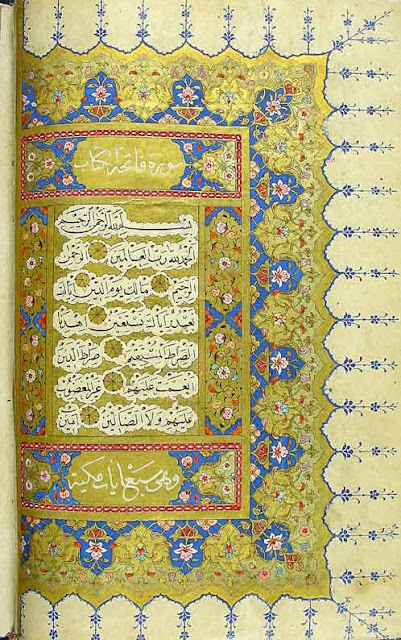 سورة فاتحة الكتاب
بسم الله الرحمن الرحيم
الحمد لله رب العالمين الرحمن
الرحيم مالك يوم الدين اياك
نعبد واياك نستعين اهدنا
الصراط المستقيم صراط الذين
انعمت عليهم غير المغضوب
عليهم ولا الضالين امين
وهي سبع ايات مكية